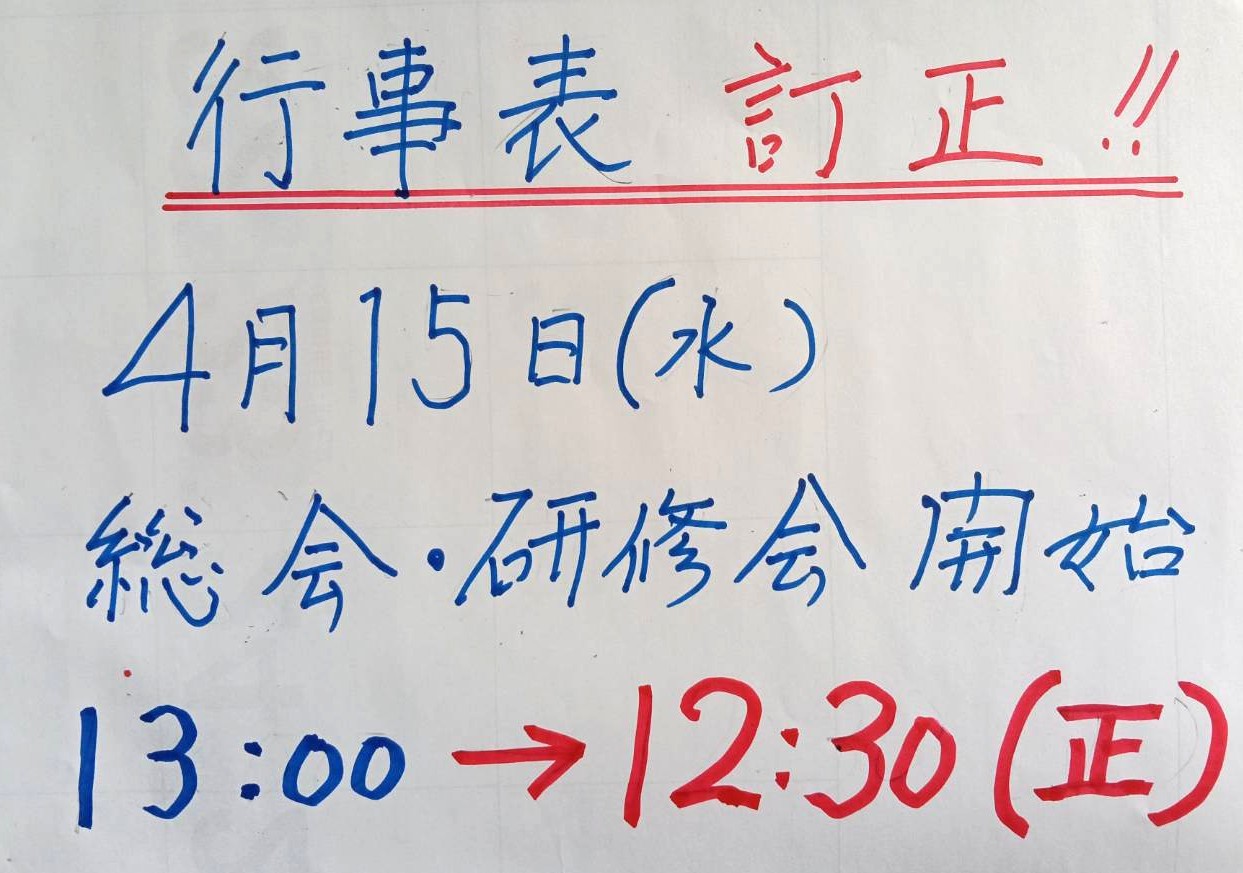 行事表 訂正!!
4月15日(水)
総会・研修会 開始
13:00→12:30(正)